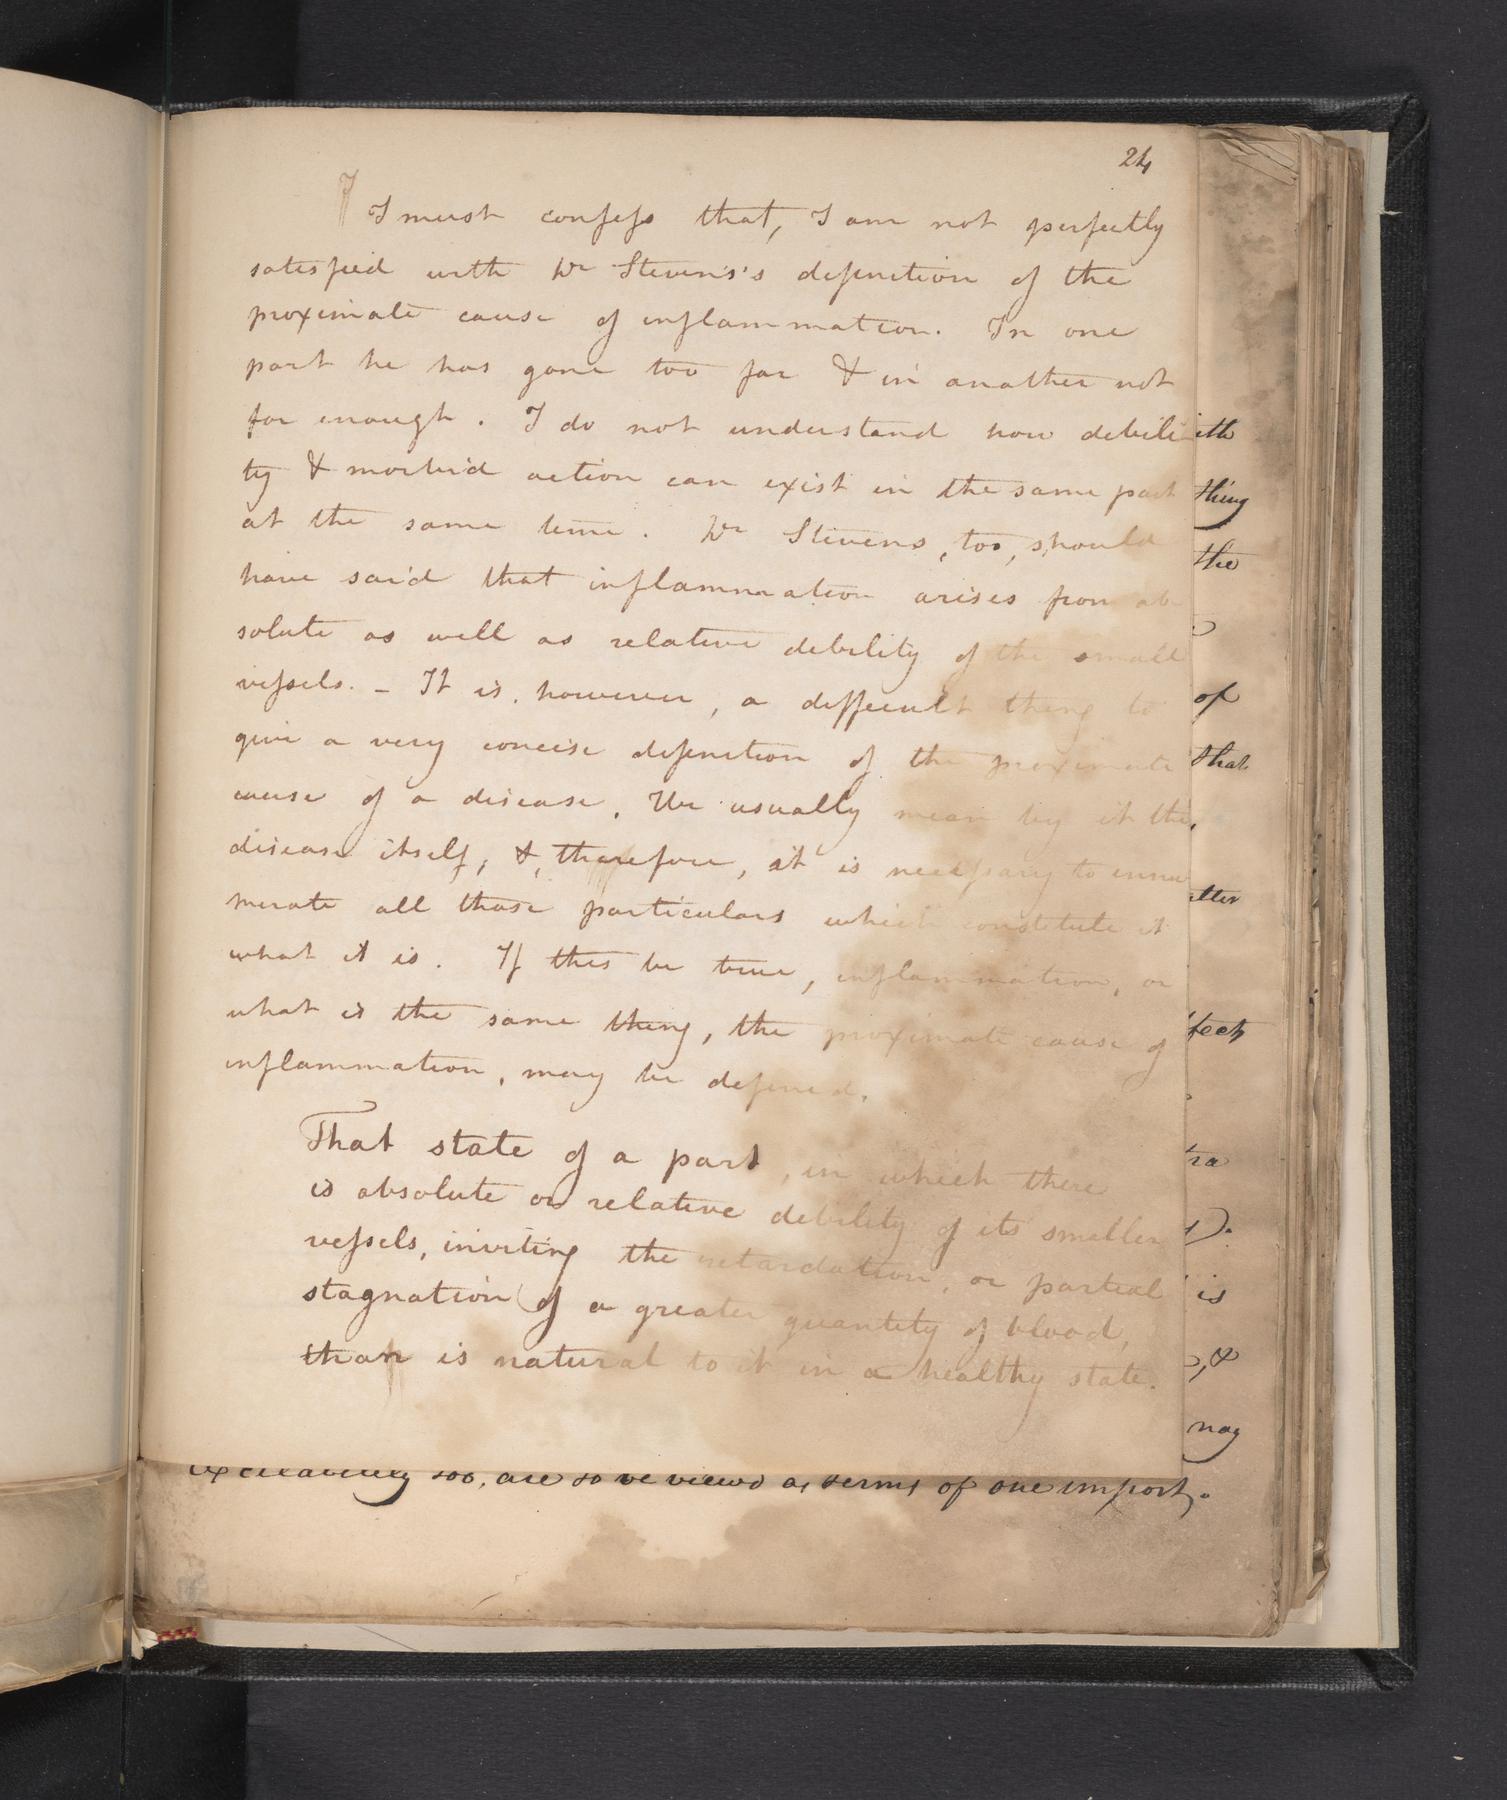 24
I must confess that, I am not perfectly
satisfied with Dr Stevens's definition of the
proximate cause of inflammation. In one
part he has gone too far & in another not
far enough. I do not understand how debili
ty & morbid action can exist in the same part
at the same time. Dr Stevens, too, should
have said that inflammation arises from ab
solute as well as relative debility of the small
vessels. - It is, however, a difficult thing to
give a very concise definition of the proximate
cause of a disease. We usually mean by it the
disease itself, &, therefore, it is necessary to ennu
merate all those particulars which constitute it
what it is. If this be true, inflammation, or
what is the same thing, the proximate cause of
inflammation, may be defined.
That state of a part, in which there
is absolute or relative debility of its smaller
vessels, inviting the retardation, or partial
stagnation of a greater quantity of blood,
than is natural to it in a healthy state.
ith
thing
the
of
that
fect
tra
is
, &
may
excitability too, are to be viewd as terms of one import.